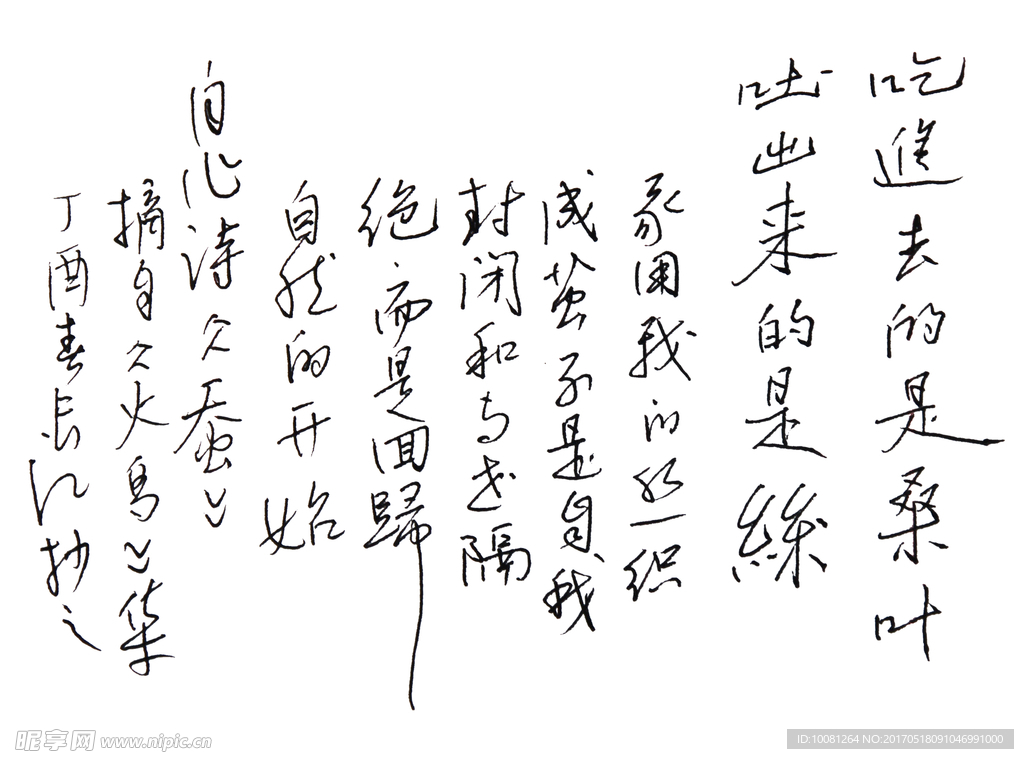 吃進去的是桑叶
吐出来的是絲
我的丝织
成茧不是自我
封闭和与世隔
绝,而是回歸
自然的开始
白心诗《蚕》
摘自《火鳥》集
丁酉春长江抄之
昵享网 www.nipic.cn
ID:10081264 NO:20170518091046991000